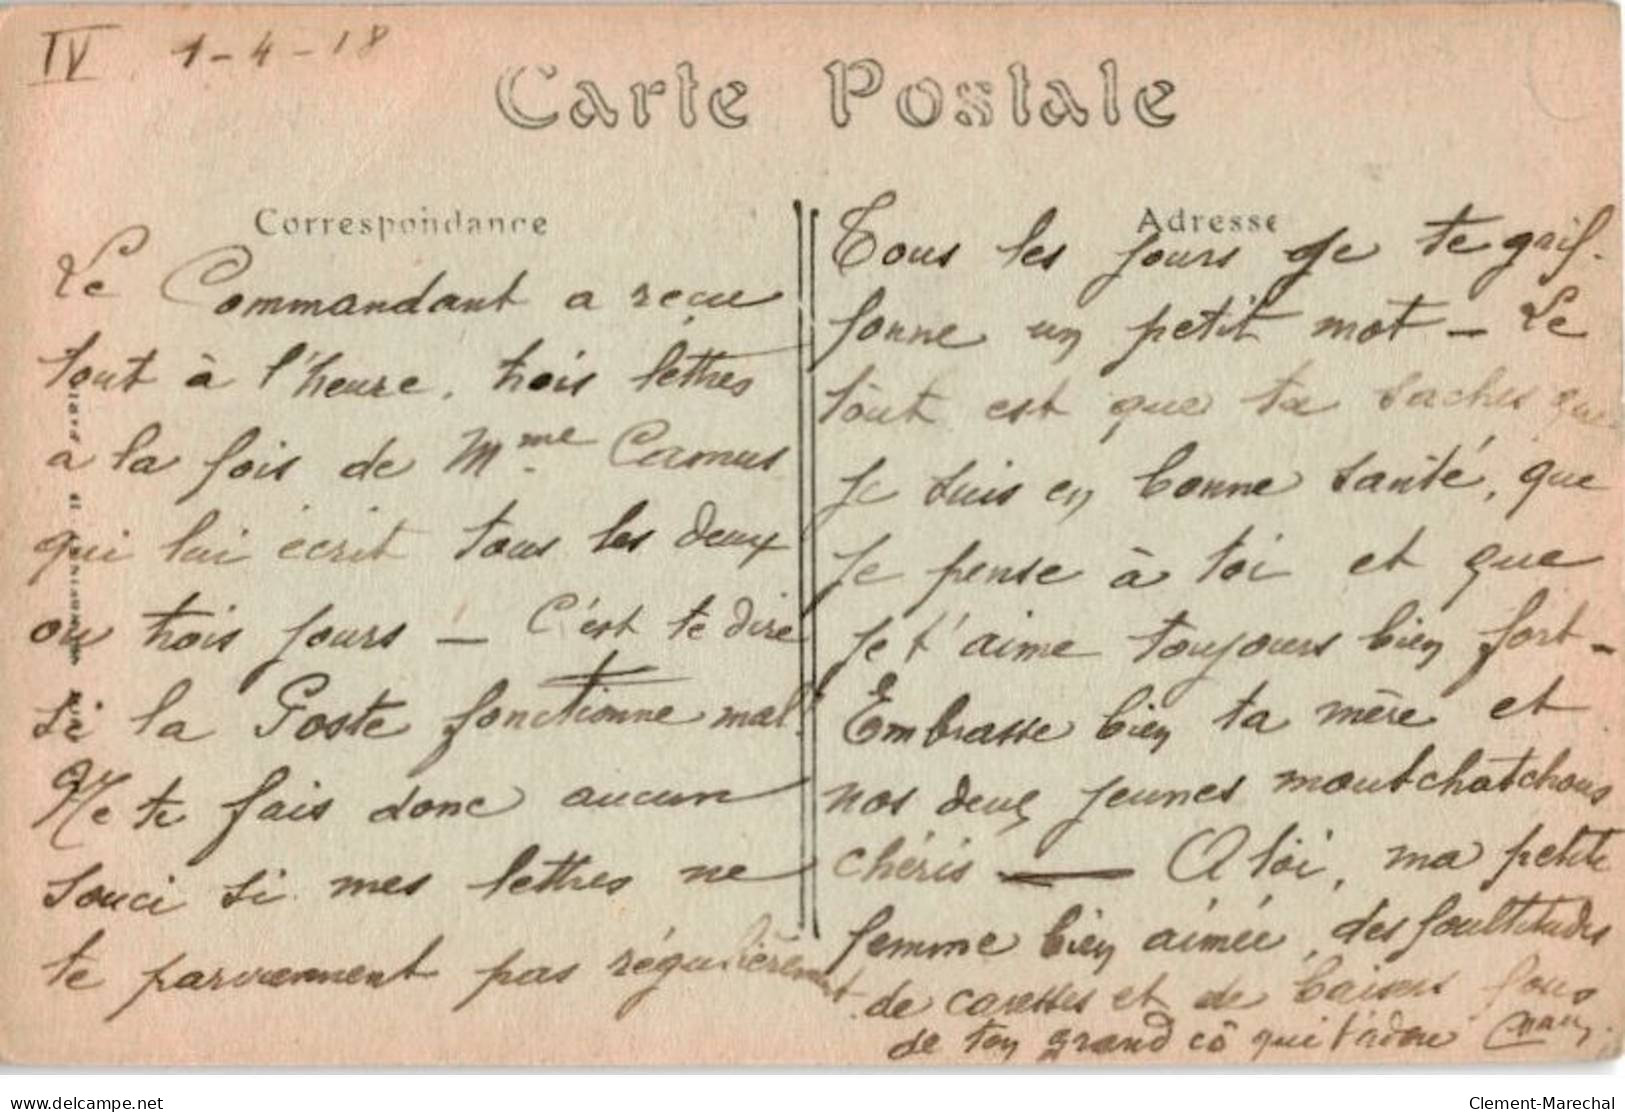 IV. 1-4-18
Carte Postale
Correspondance
Le Commandant a reçu
tout à l'heure, trois lettres
a la fois de Mme Camus
qui lui écrit tous les deux
ou trois jours — C'est te dire
si la Poste fonctionne mal!
Ne te fais donc aucun
souci si mes lettres ne
te parviennent pas régulièrement.
Adresse
Tous les jours je te grif-
fonne un petit mot — Le
tout est que tu saches que
je suis en bonne santé, que
je pense à toi et que
je t'aime toujours bien fort —
Embrasse bien ta mère et
nos deux jeunes moutchatchous
chéris — A toi, ma petite
femme bien aimée, des foultitudes
de caresses et de baisers fous
de ton grand cô qui t'adore
delcampe.net
Clement-Marechal